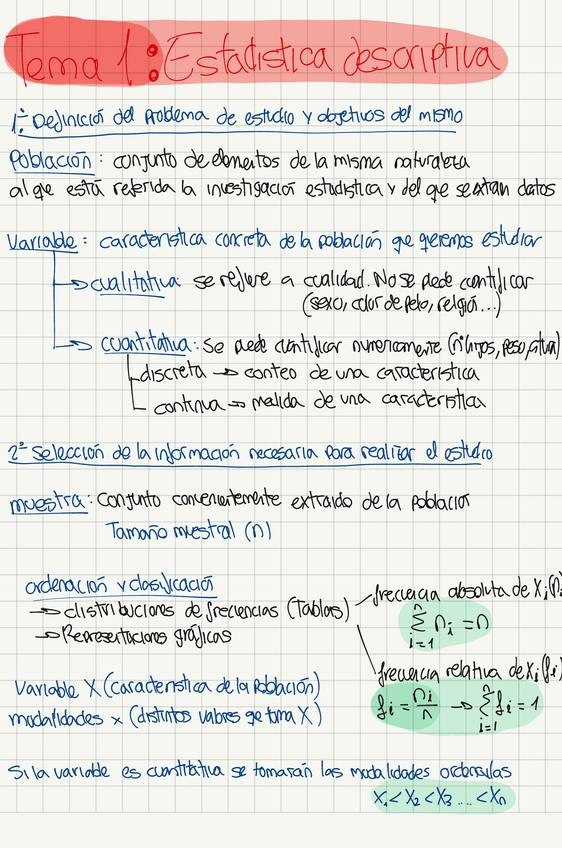 Tema 1: Estadística descriptiva
1º Definición del problema de estudio y objetivos del mismo
Población: conjunto de elementos de la misma naturaleza
al que está referida la investigación estadística y del que se extran datos
Variable: característica concreta de la población que queremos estudiar
→ cualitativa: se refiere a cualidad. No se puede cuantificar
(sexo, color de pelo, religió...)
→ cuantitativa: Se puede cuantificar numéricamente (nº hijos, peso, altura)
discreta → conteo de una característica
continua → medida de una característica
2º Selección de la información necesaria para realizar el estudio
muestra: Conjunto convenientemente extraido de la población
Tamaño muestral (n)
ordenación y clasificación
→ distribuciones de frecuencias (Tablas)
→ Representaciones gráficas
frecuencia absoluta de Xi (ni
n Σ i=1 ni = n
frecuencia relativa de Xi (fi)
fi = ni/n → n Σ i=1 fi = 1
Variable X (característica de la población)
modalidades x (distintos valores qe toma X)
Si la variable es cuantitativa se tomarán las modalidades ordenadas
X1 < X2 < X3 .... < Xn